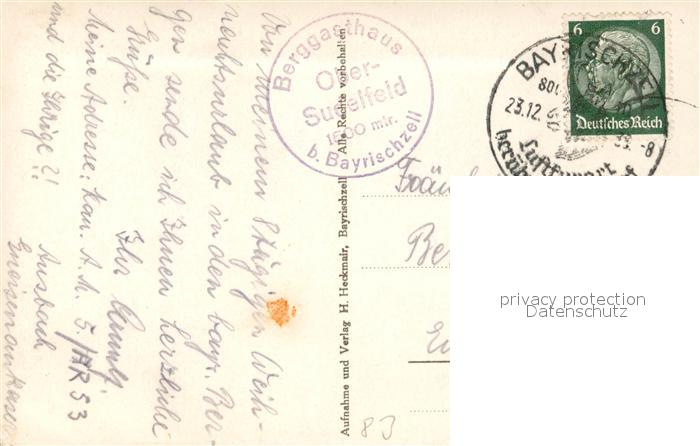 Von meinem 8tägigen Weih-
nachtsurlaub in den bayr. Ber-
gen sende ich Ihnen herzliche
Grüße.
Ihr
Meine Adresse: Kan. A.M. 5./AR 53
und die Ihrige?!
Ansbach
Berggasthaus
Ober-
Sudelfeld
1500 mtr.
b. Bayrischzell
Aufnahme und Verlag H. Heckmair, Bayrischzell Alle Rechte vorbehalten
BAYRISCHZELL
23.12.
-8
Luftkurort
6 6
Deutsches Reich
Fräul
Be
83
privacy protection
Datenschutz